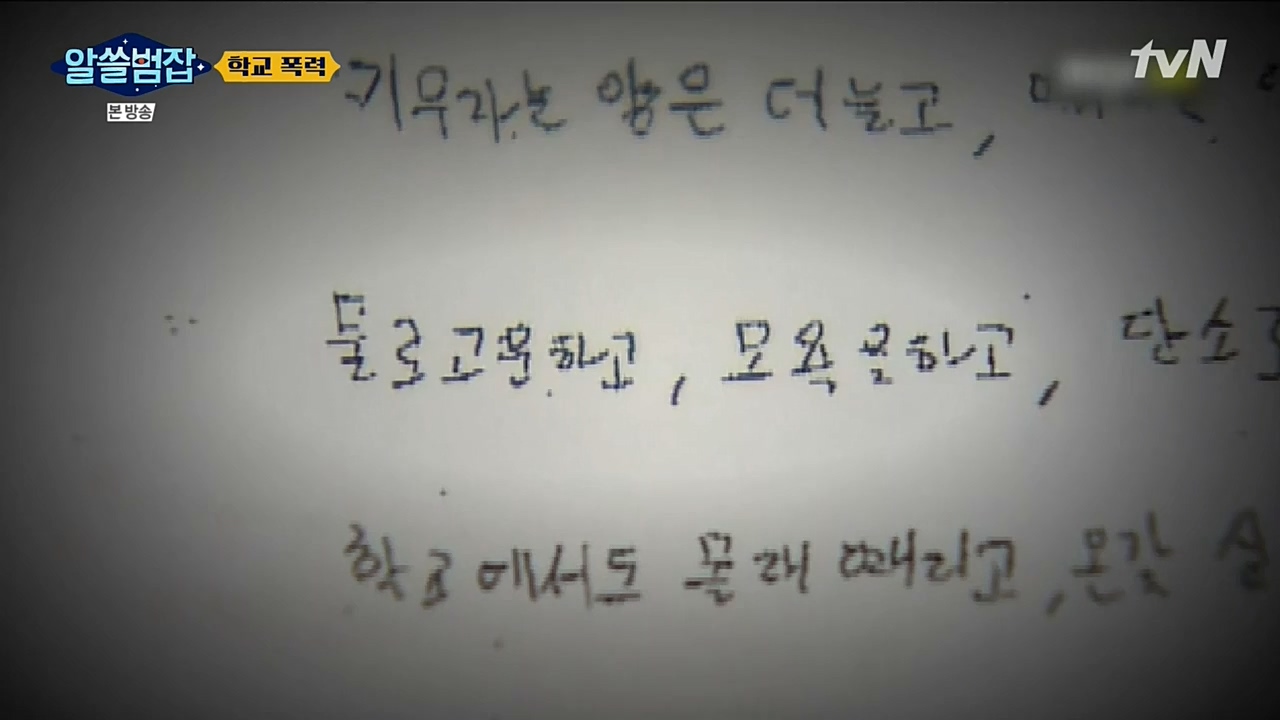 알쓸범잡 학교 폭력 tvN
본 방송
키우라는 양은 더 늘고,
물로고문하고, 모욕을하고, 단소로
학교에서도 몰래 때리고, 온갖